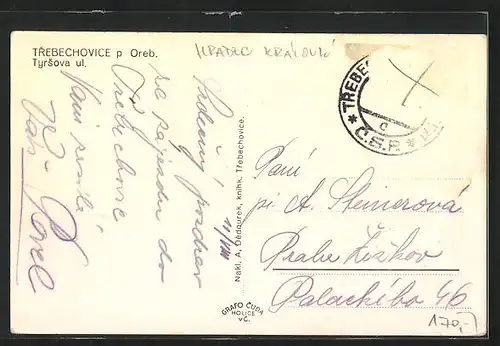 TŘEBECHOVICE p Oreb.
Tyršova ul.
HRADEC KRÁLOVÉ
Srdečný pozdrav
ze zájezdu do
Třebechovic
Vám posílá
Váš
Pavel
11/VIII
Nakl. A. Dědourek, knihk. Třebechovice.
GRAFO ČUDA
HOLICE
VČ.
* TŘEBE
Č.S.P. *
c
Paní
pí A. Steinerová
Praha Žižkov
Palackého 46
170,-